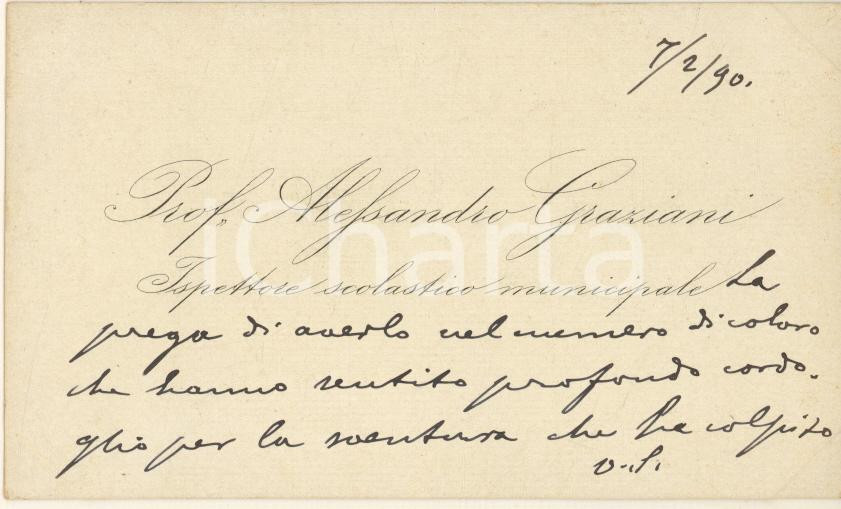 7/2/90.
Prof. Alessandro Graziani
Ispettore scolastico municipale La
prega di averlo nel numero di coloro
che hanno sentito profondo cordo-
glio per la sventura che ha colpito
V.S.
iCharta